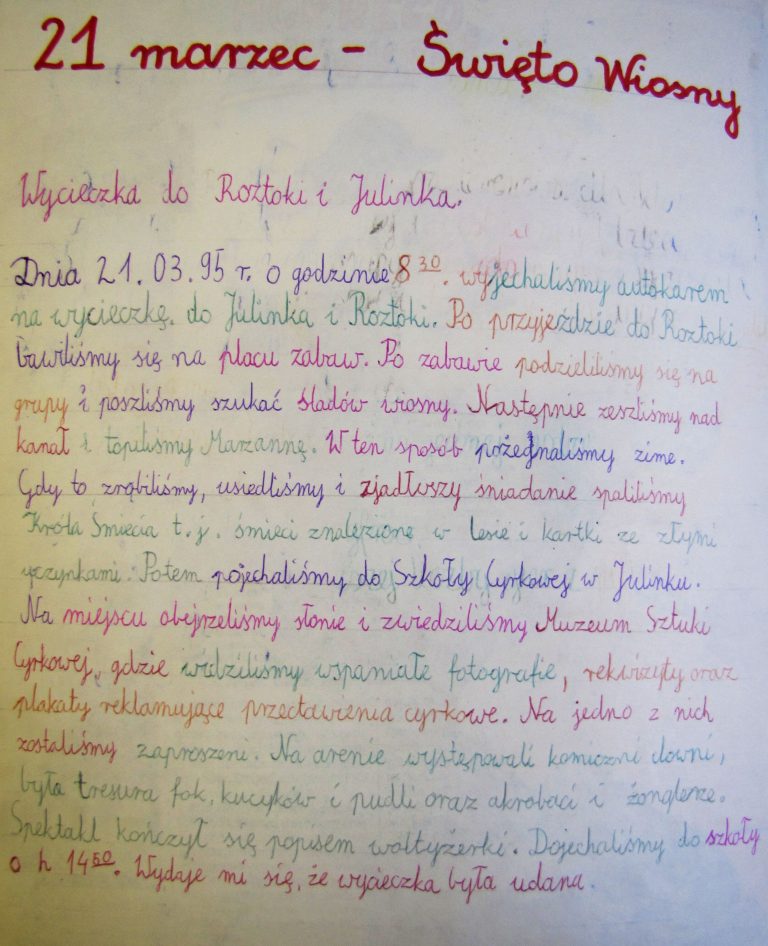 21 marzec - Święto Wiosny
Wycieczka do Roztoki i Julinka.
Dnia 21.03.95 r. o godzinie 8 30. wyjechaliśmy autokarem
na wycieczkę. do Julinka i Roztoki. Po przyjeździe do Roztoki
bawiliśmy się na placu zabaw. Po zabawie podzieliliśmy się na
grupy i poszliśmy szukać śladów wiosny. Następnie zeszliśmy nad
kanał i topiliśmy Marzannę. W ten sposób pożegnaliśmy zime.
Gdy to zrobiliśmy, usiedliśmy i zjadłwszy śniadanie spaliliśmy
Króla Śmiecia t.j. śmieci znalezione w lesie i kartki ze złymi
uczynkami. Potem pojechaliśmy do Szkoły Cyrkowej w Julinku.
Na miejscu obejrzeliśmy słonie i zwiedziliśmy Muzeum Sztuki
Cyrkowej, gdzie widziliśmy wspaniałe fotografie, rekwizyty oraz
plakaty reklamujące przedtawienia cyrkowe. Na jedno z nich
zostaliśmy zaproszeni. Na arenie występowali komiczni clowni,
była tresura fok, kucyków i pudli oraz akrobaci i żonglerze.
Spektakl kończył się popisem woltyżerki. Dojechaliśmy do szkoły
o h 14 50. Wydaje mi się, że wycieczka była udana.